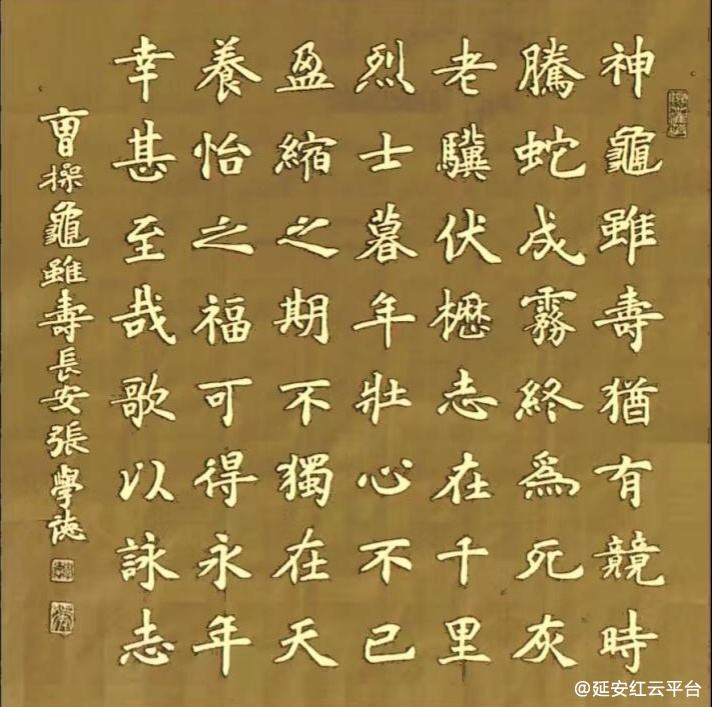 神龜雖壽猶有競時
騰蛇成霧終爲死灰
老驥伏櫪志在千里
烈士暮年壯心不已
盈縮之期不獨在天
養怡之福可得永年
幸甚至哉歌以詠志
曹操龜雖壽長安張學
@延安红云平台